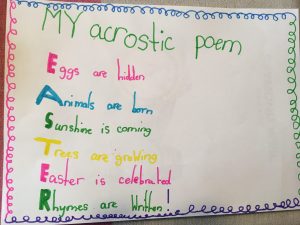 MY acrostic poem
Eggs are hidden
Animals are born
Sunshine is coming
Trees are growing
Easter is celebrated
Rhymes are written!